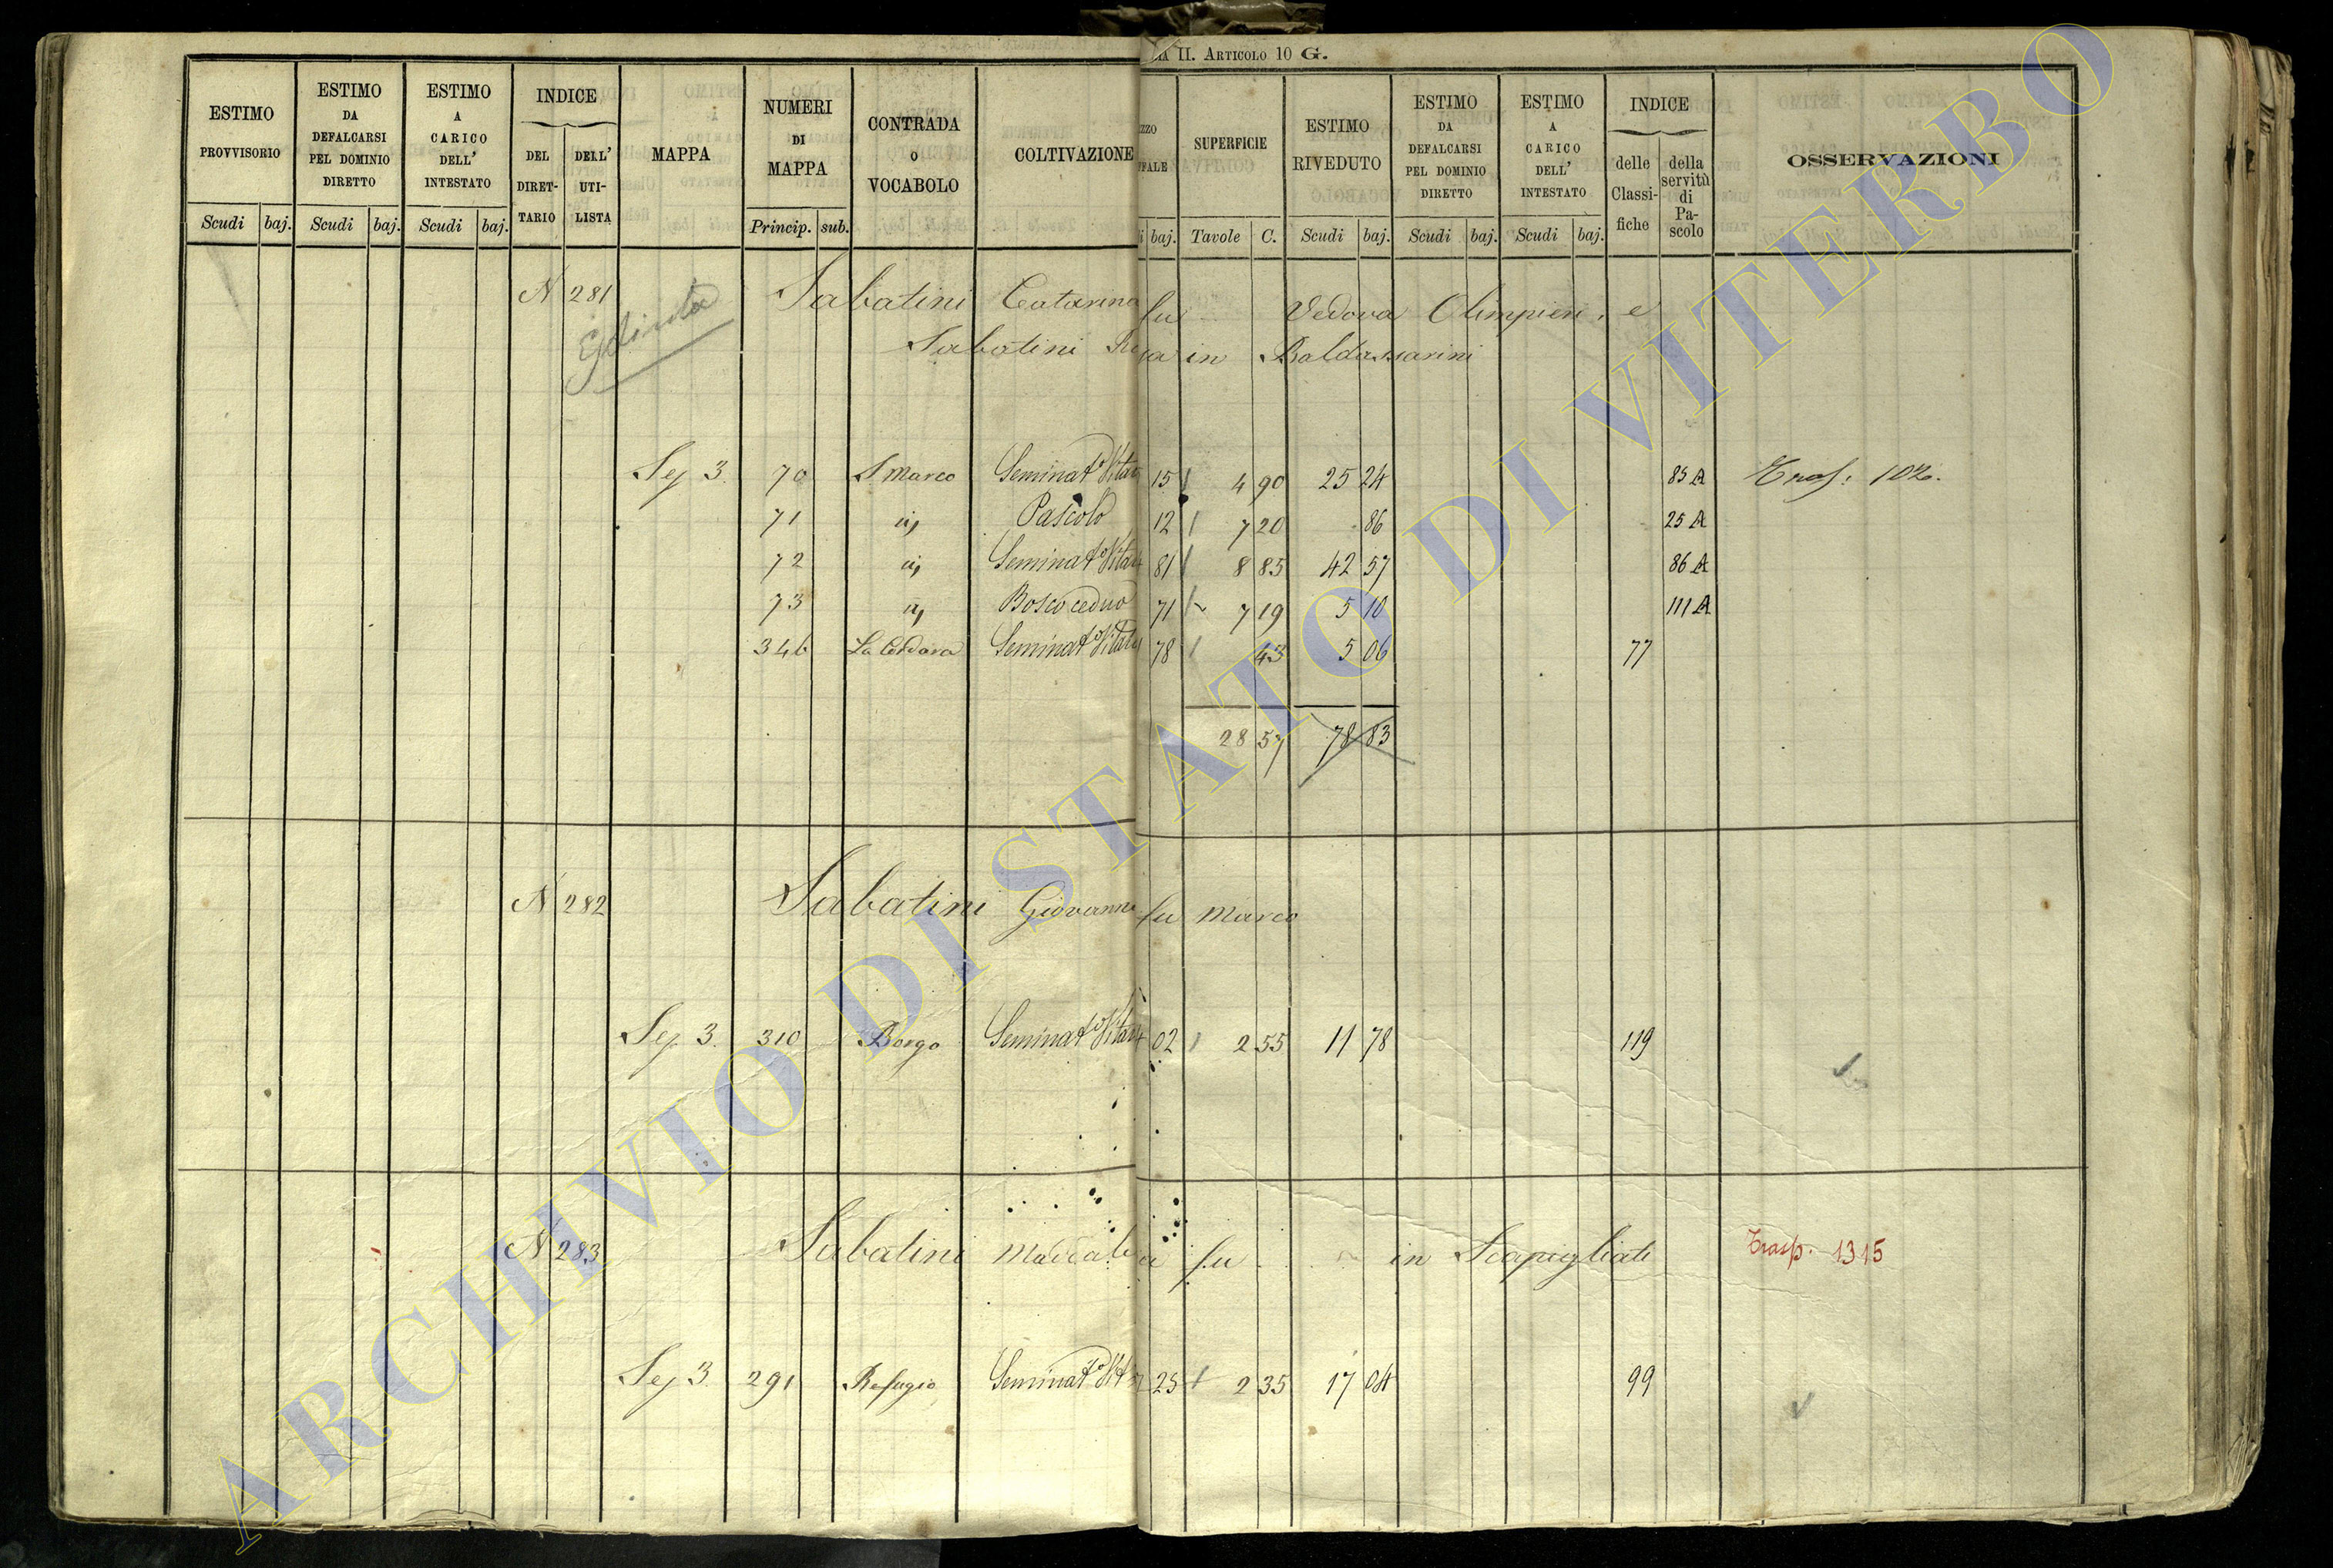 II. Articolo 10 G.
ESTIMO PROVVISORIO Scudi baj.
ESTIMO DA DEFALCARSI PEL DOMINIO DIRETTO Scudi baj.
ESTIMO A CARICO DELL' INTESTATO Scudi baj.
INDICE DEL DIRET-TARIO DELL' UTI-LISTA
MAPPA
NUMERI DI MAPPA Princip. sub.
CONTRADA O VOCABOLO
COLTIVAZIONE
baj.
SUPERFICIE Tavole C.
ESTIMO RIVEDUTO Scudi baj.
ESTIMO DA DEFALCARSI PEL DOMINIO DIRETTO Scudi baj.
ESTIMO A CARICO DELL' INTESTATO Scudi baj.
INDICE delle Classi-fiche della servitù di Pa-scolo
OSSERVAZIONI
N 281 Sabatini Catarina fu Vedova Olimpieri, e
Sabatini in Baldassarini
Sez 3. 70 S Marco Seminat° Vitat 15 4 90 25 24 85 A Trasp: 102.
71 id, Pascolo 12 7 20 86 25 A
72 id, Seminat° Vitat 81 8 85 42 57 86 A
73 id, Bosco ceduo 71 7 19 5 10 111 A
346 Seminat° Vitat 78 43 5 06 77
28 57 78 83
N 282 Sabatini Giovanni fu Marco
Sez 3. 310 Borgo Seminat° Vitat 02 2 55 11 78 119
N 283 Sabatini fu in Scapigliati Trasp. 1315
Sez 3. 291 Refugio Seminat° Vit 25 2 35 17 04 99
ARCHIVIO DI STATO DI VITERBO